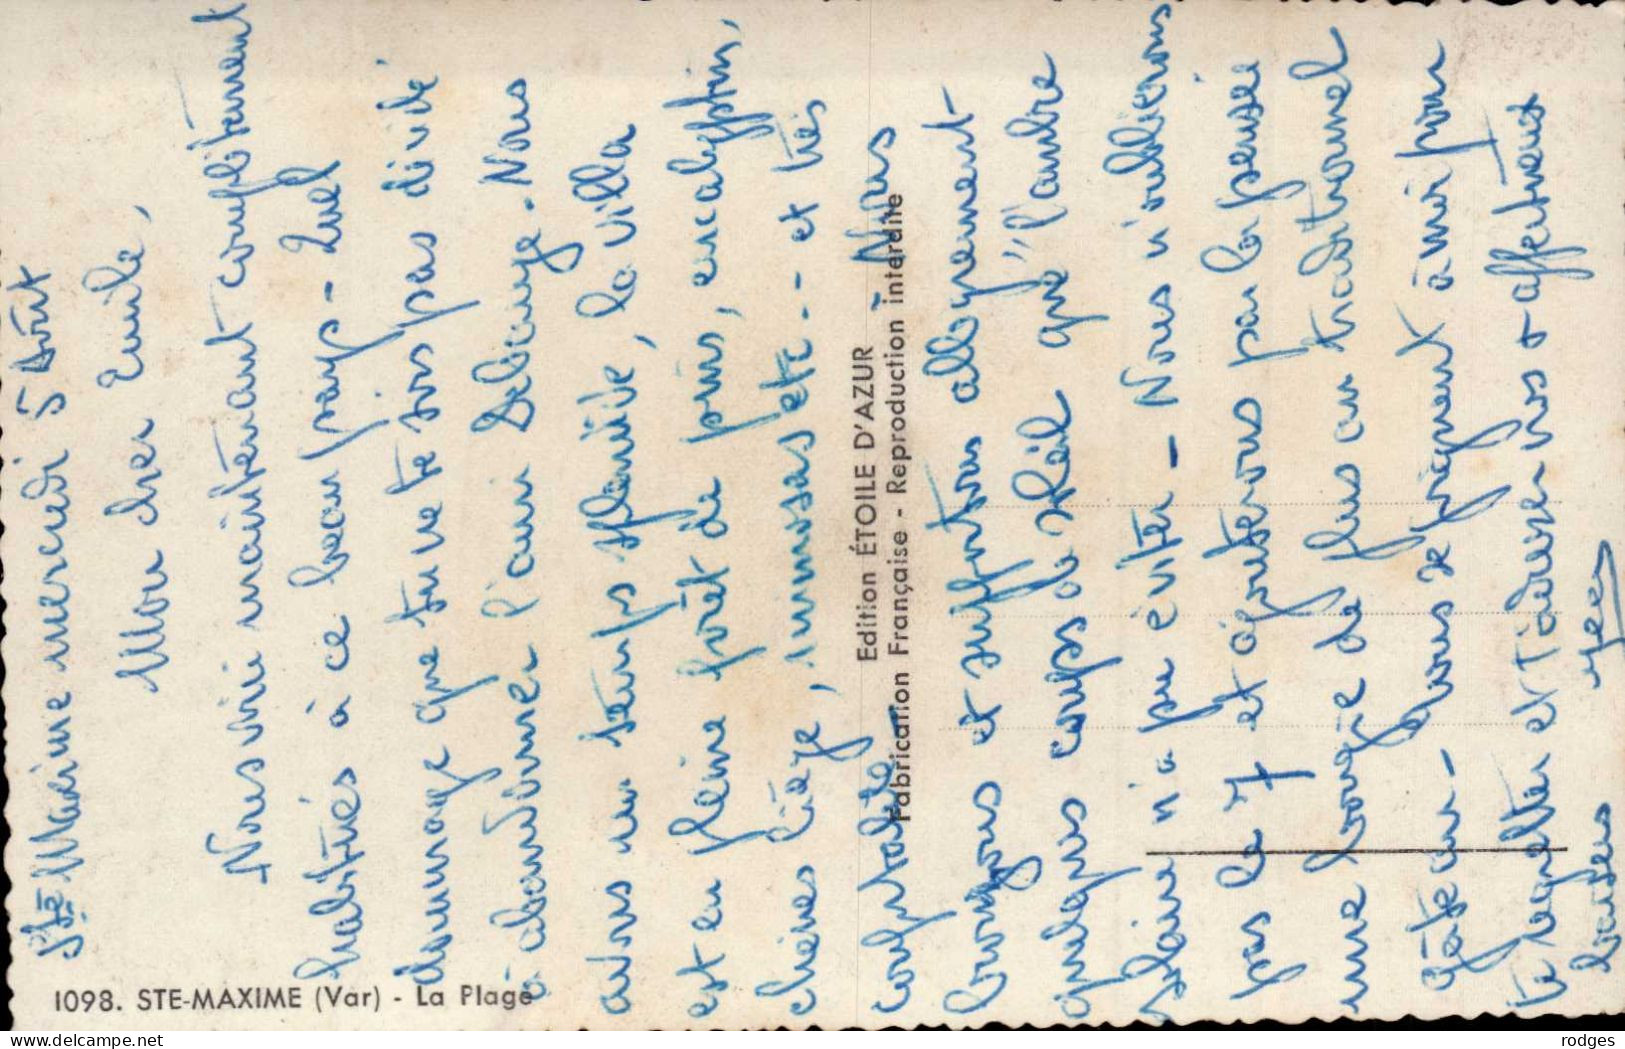 Ste Maxime mercredi 5 Août
Mon cher Emile,
Nous voici maintenant complètement
habitués à ce beau pays - Quel
dommage que tu ne te sois pas décidé
à abandonner l'ami Nous
avons un temps splendide, la villa
est en pleine forêt de pins, eucalyptus,
chênes liège, mimosas etc.. et très
confortable. Nous
bronzons et supportons allègrement
quelques coups de soleil que l'ambre
solaire n'a pu éviter - Nous n'oublierons
pas le 7 et ajouterons par la pensée
une bougie de plus au traditionnel
gâteau - se joignent à moi pour
te et t'adresser nos + affectueux
baisers
1098. STE-MAXIME (Var) - La Plage
Edition ÉTOILE D'AZUR
Fabrication Française - Reproduction interdite
rodges